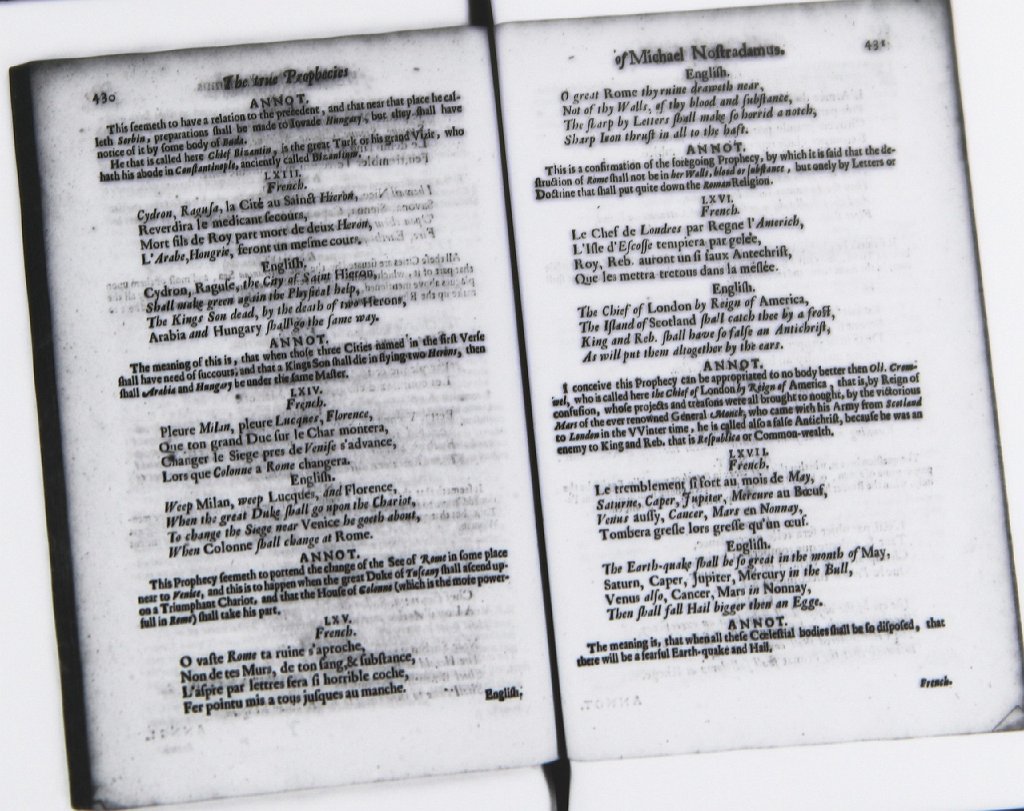 430
The true Prophecies
ANNOT.
This seemeth to have a relation to the precedent, and that near that place he cal-
leth Sorbin, preparations shall be made to Invade Hungary, but they shall have
notice of it by some body of Buda.
He that is called here Chief Bizantin, is the great Turk or his grand Visir, who
hath his abode in Constantinople, anciently called Bizantium.
LXIII.
French.
Cydron, Ragusa, la Cité au Sainct Hieron,
Reverdira le medicant secours,
Mort fils de Roy part mort de deux Heron,
L'Arabe, Hongrie, feront un mesme cours.
English.
Cydron, Raguse, the City of Saint Hieron,
Shall make green again the Physical help,
The Kings Son dead, by the death of two Herons,
Arabia and Hungary shall go the same way.
ANNOT.
The meaning of this, that when those three Cities named in the first Verse
shall have need of succours, and that a Kings Son shall die in flying two Herons, then
shall Arabia and Hungary be under the same Master.
LXIV.
French.
Pleure Milan, pleure Lucques, Florence,
Que ton grand Duc sur le Char montera,
Changer le Siege pres de Venise s'advance,
Lors que Colonne a Rome changera.
English.
Weep Milan, weep Lucques, and Florence,
When the great Duke shall go upon the Chariot,
To change the Siege near Venice he goeth about,
When Colonne shall change at Rome.
ANNOT.
This Prophecy seemeth to portend the change of the See of Rome in some place
near to Venice, and this is to happen when the great Duke of Tuscany shall ascend up-
on a Triumphant Chariot, and that the House of Colonna (which is the more power-
full in Rome) shall take his part.
LXV.
French.
O vaste Rome ta ruine s'aproche,
Non de tes Murs, de ton sang, & substance,
L'aspre par lettres fera si horrible coche,
Fer pointu mis a tous jusques au manche.
English.
of Michael Nostradamus.
431
English.
O great Rome thy ruine draweth near,
Not of thy Walls, of thy blood and substance,
The sharp by Letters shall make so horrid a notch,
Sharp Iron thrust in all to the haft.
ANNOT.
This is a confirmation of the foregoing Prophecy, by which it is said that the de-
struction of Rome shall not be in her Walls, blood or substance, but onely by Letters or
Doctrine that shall put quite down the Roman Religion.
LXVI.
French.
Le Chef de Londres par Regne l'Americh,
L'Isle d'Escosse tempiera par gelée,
Roy, Reb. auront un si faux Antechrist,
Que les mettra tretous dans la meslée.
English.
The Chief of London by Reign of America,
The Island of Scotland shall catch thee by a frost,
King and Reb. shall have so false an Antichrist,
As will put them altogether by the ears.
ANNOT.
I conceive this Prophecy can be appropriated to no body better then Oli. Crom-
wel, who is called here the Chief of London by Reign of America, that is, by Reign of
confusion, whose projects and treasons were all brought to nought, by the victorious
Mars of the ever renowned General Monck, who came with his Army from Scotland
to London in the VVinter time, he is called also a false Antichrist, because he was an
enemy to King and Reb. that is Respublica or Common-wealth.
LXVII.
French,
Le tremblement si fort au mois de May,
Saturne, Caper, Jupiter, Mercure au Bœuf,
Venus aussy, Cancer, Mars en Nonnay,
Tombera gresse lors gresse qu'un œuf.
English.
The Earth-quake shall be so great in the month of May,
Saturn, Caper, Jupiter, Mercury in the Bull,
Venus also, Cancer, Mars in Nonnay,
Then shall fall Hail bigger then an Egge.
ANNOT.
The meaning is, that when all these Cœlestial bodies shall be so disposed, that
there will be a fearful Earth-quake and Hail.
French.